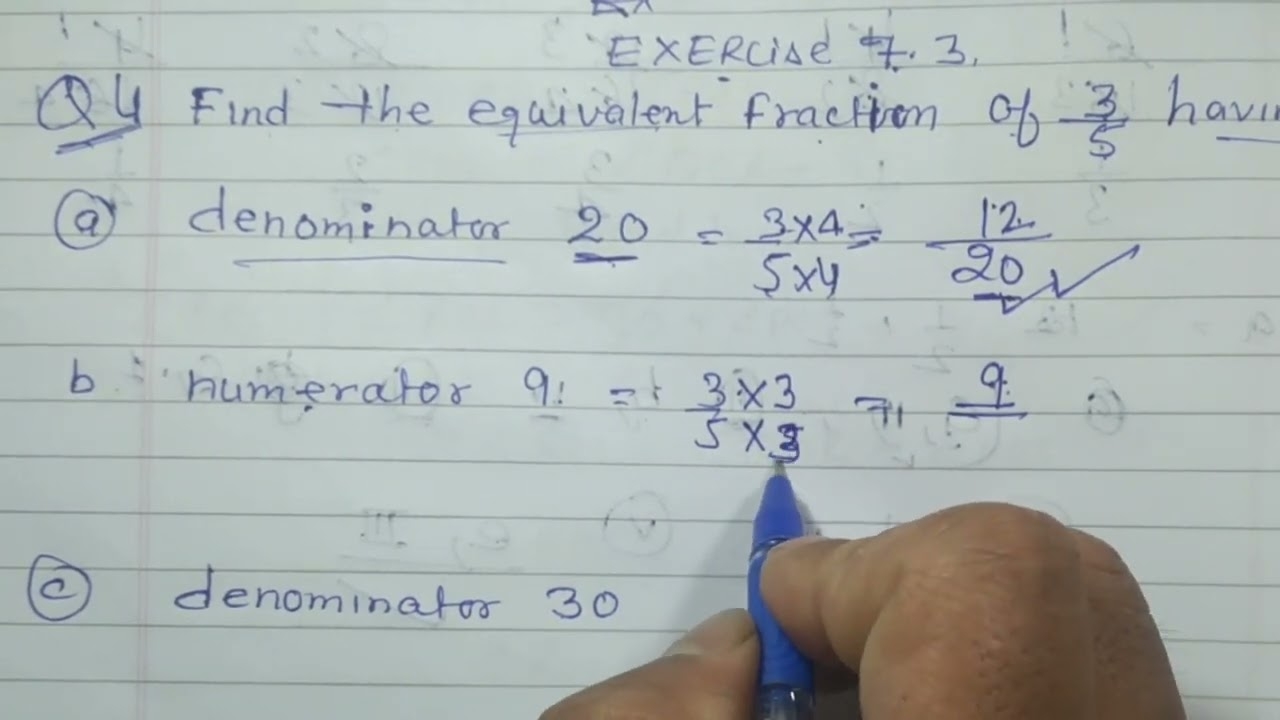 EXERCISE 7.3.
Q4 Find the equivalent fraction of 3/5 havin
(a) denominator 20 = 3×4/5×4 = 12/20
b numerator 9 = 3×3/5×3 = 9/
(c) denominator 30